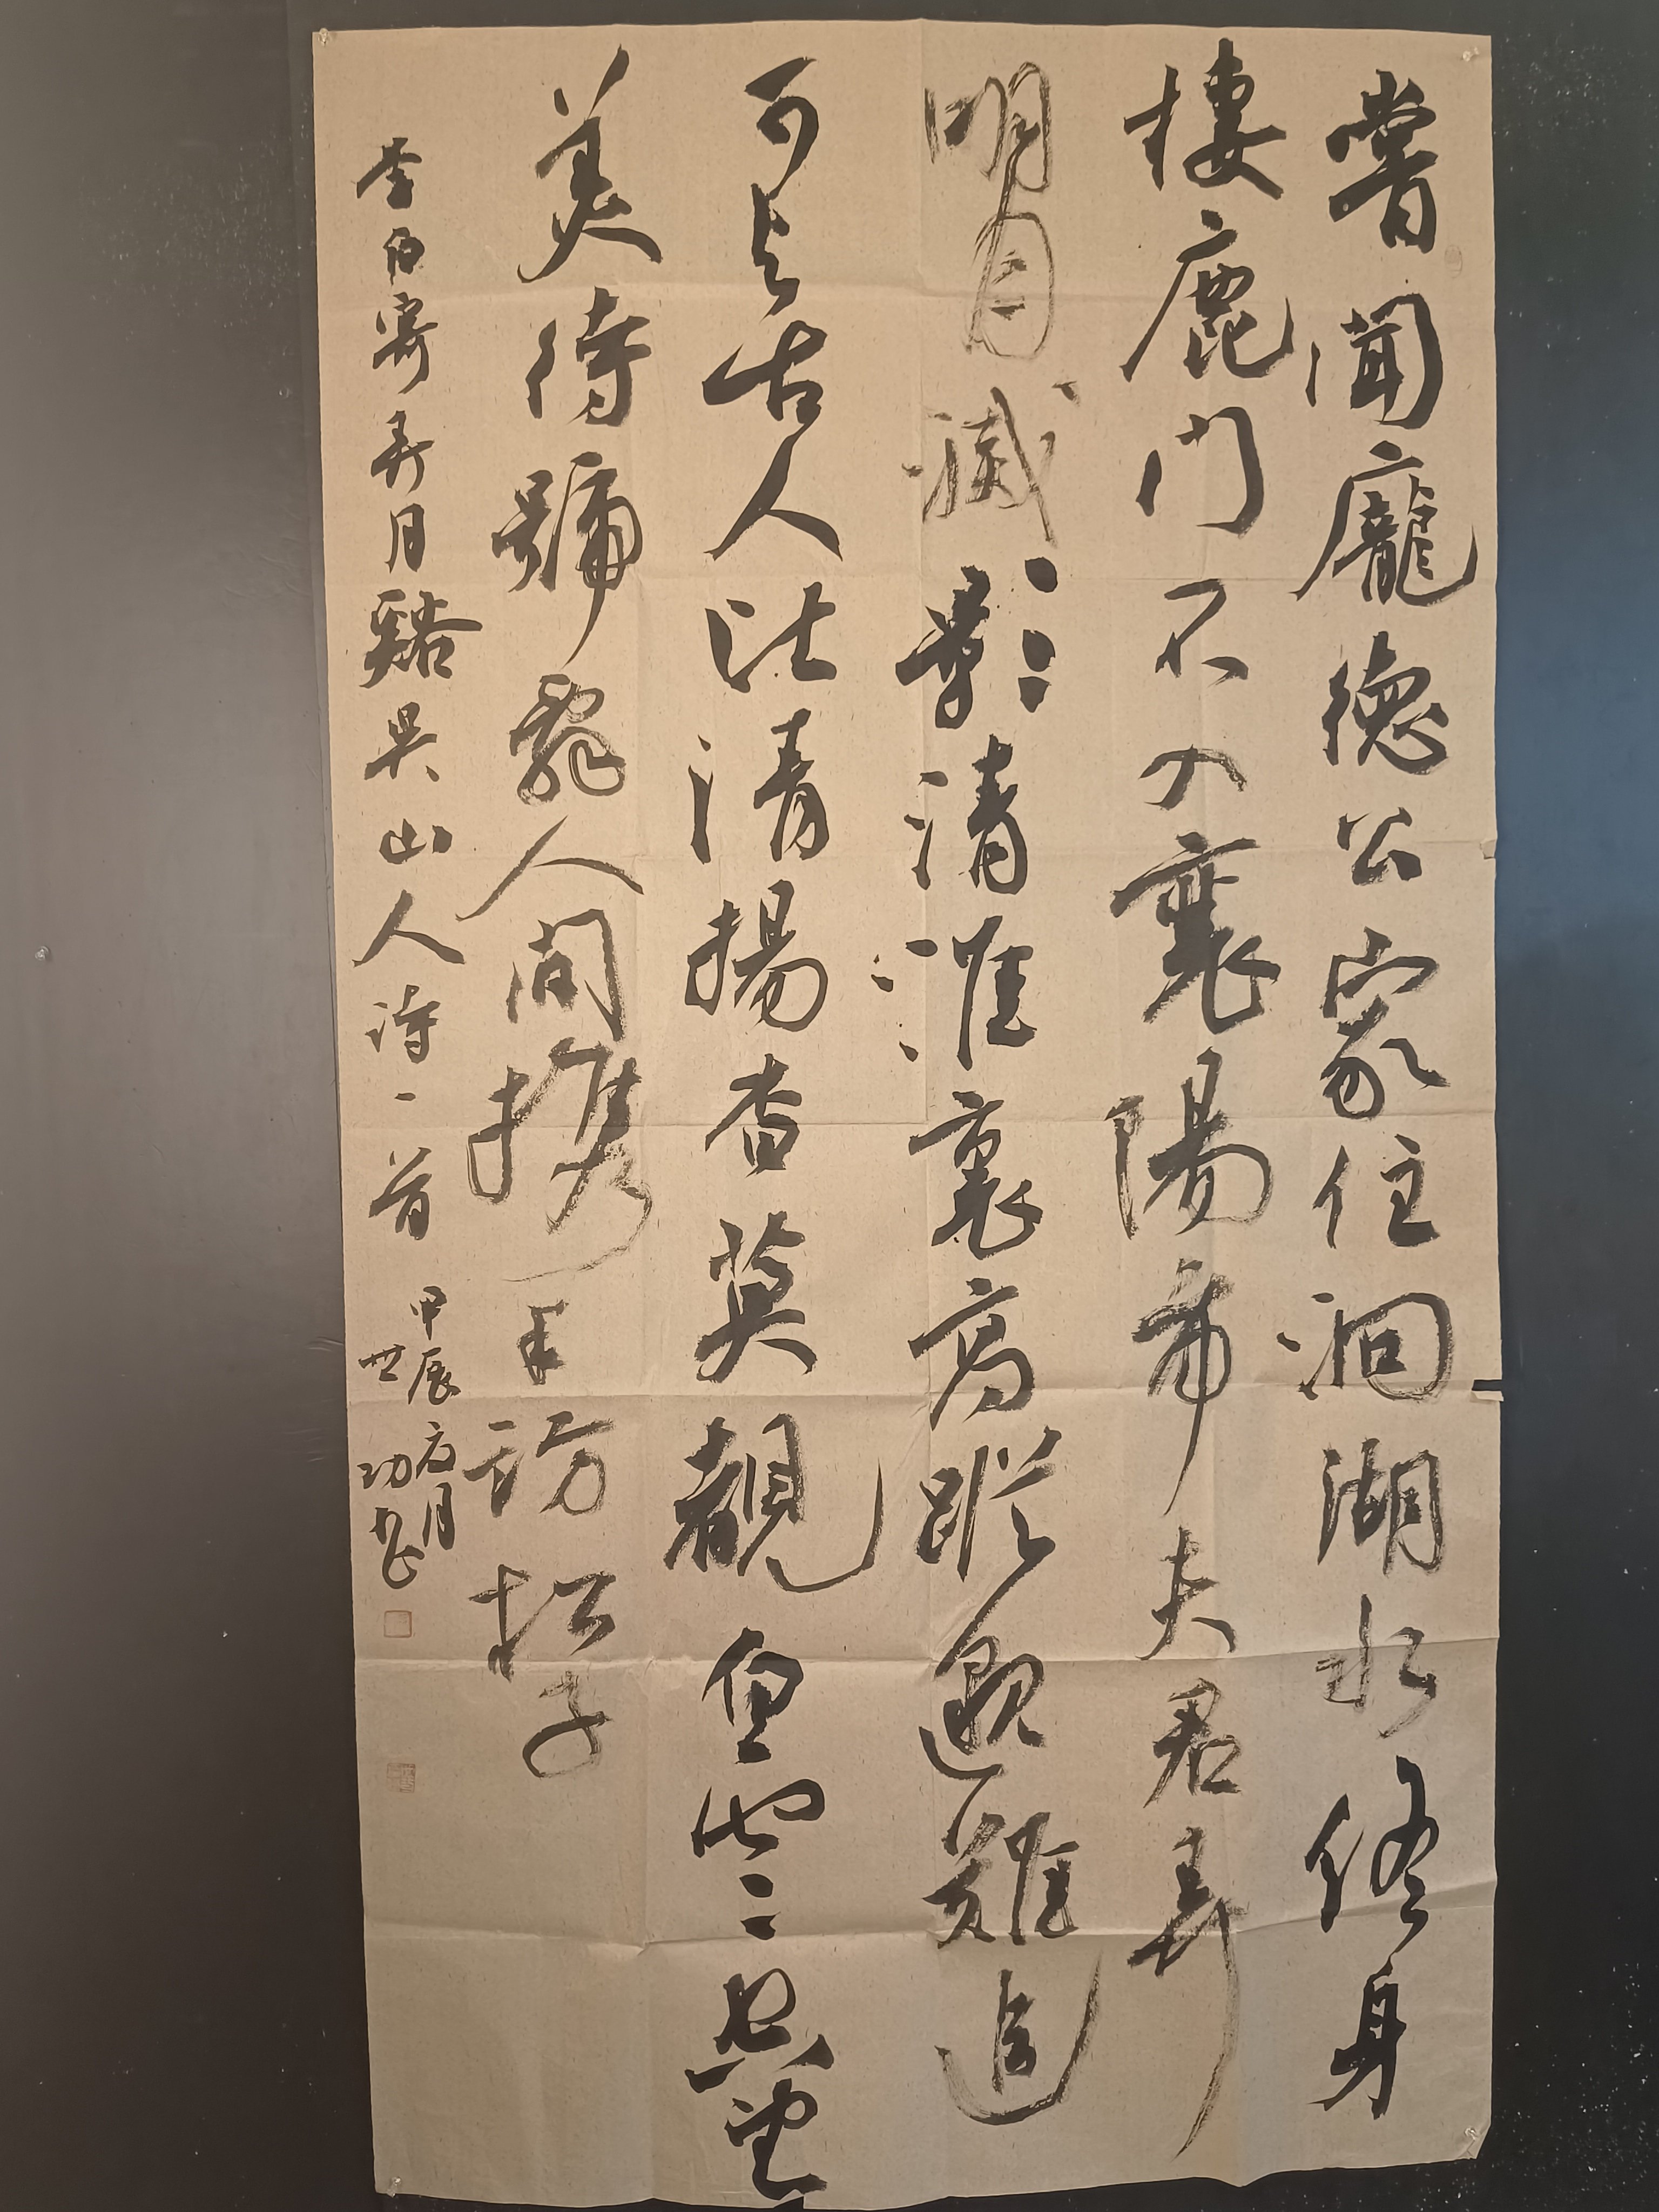 嘗聞龐德公家住洞湖水終身
棲鹿門不入襄陽市夫君弄
明月滅影清淮裏高蹤邈難追
可与古人比清揚杳莫覩白雲空望
美待辭人間携手訪松子
李白寄弄月谿吳山人詩一首
甲辰六月
世功书